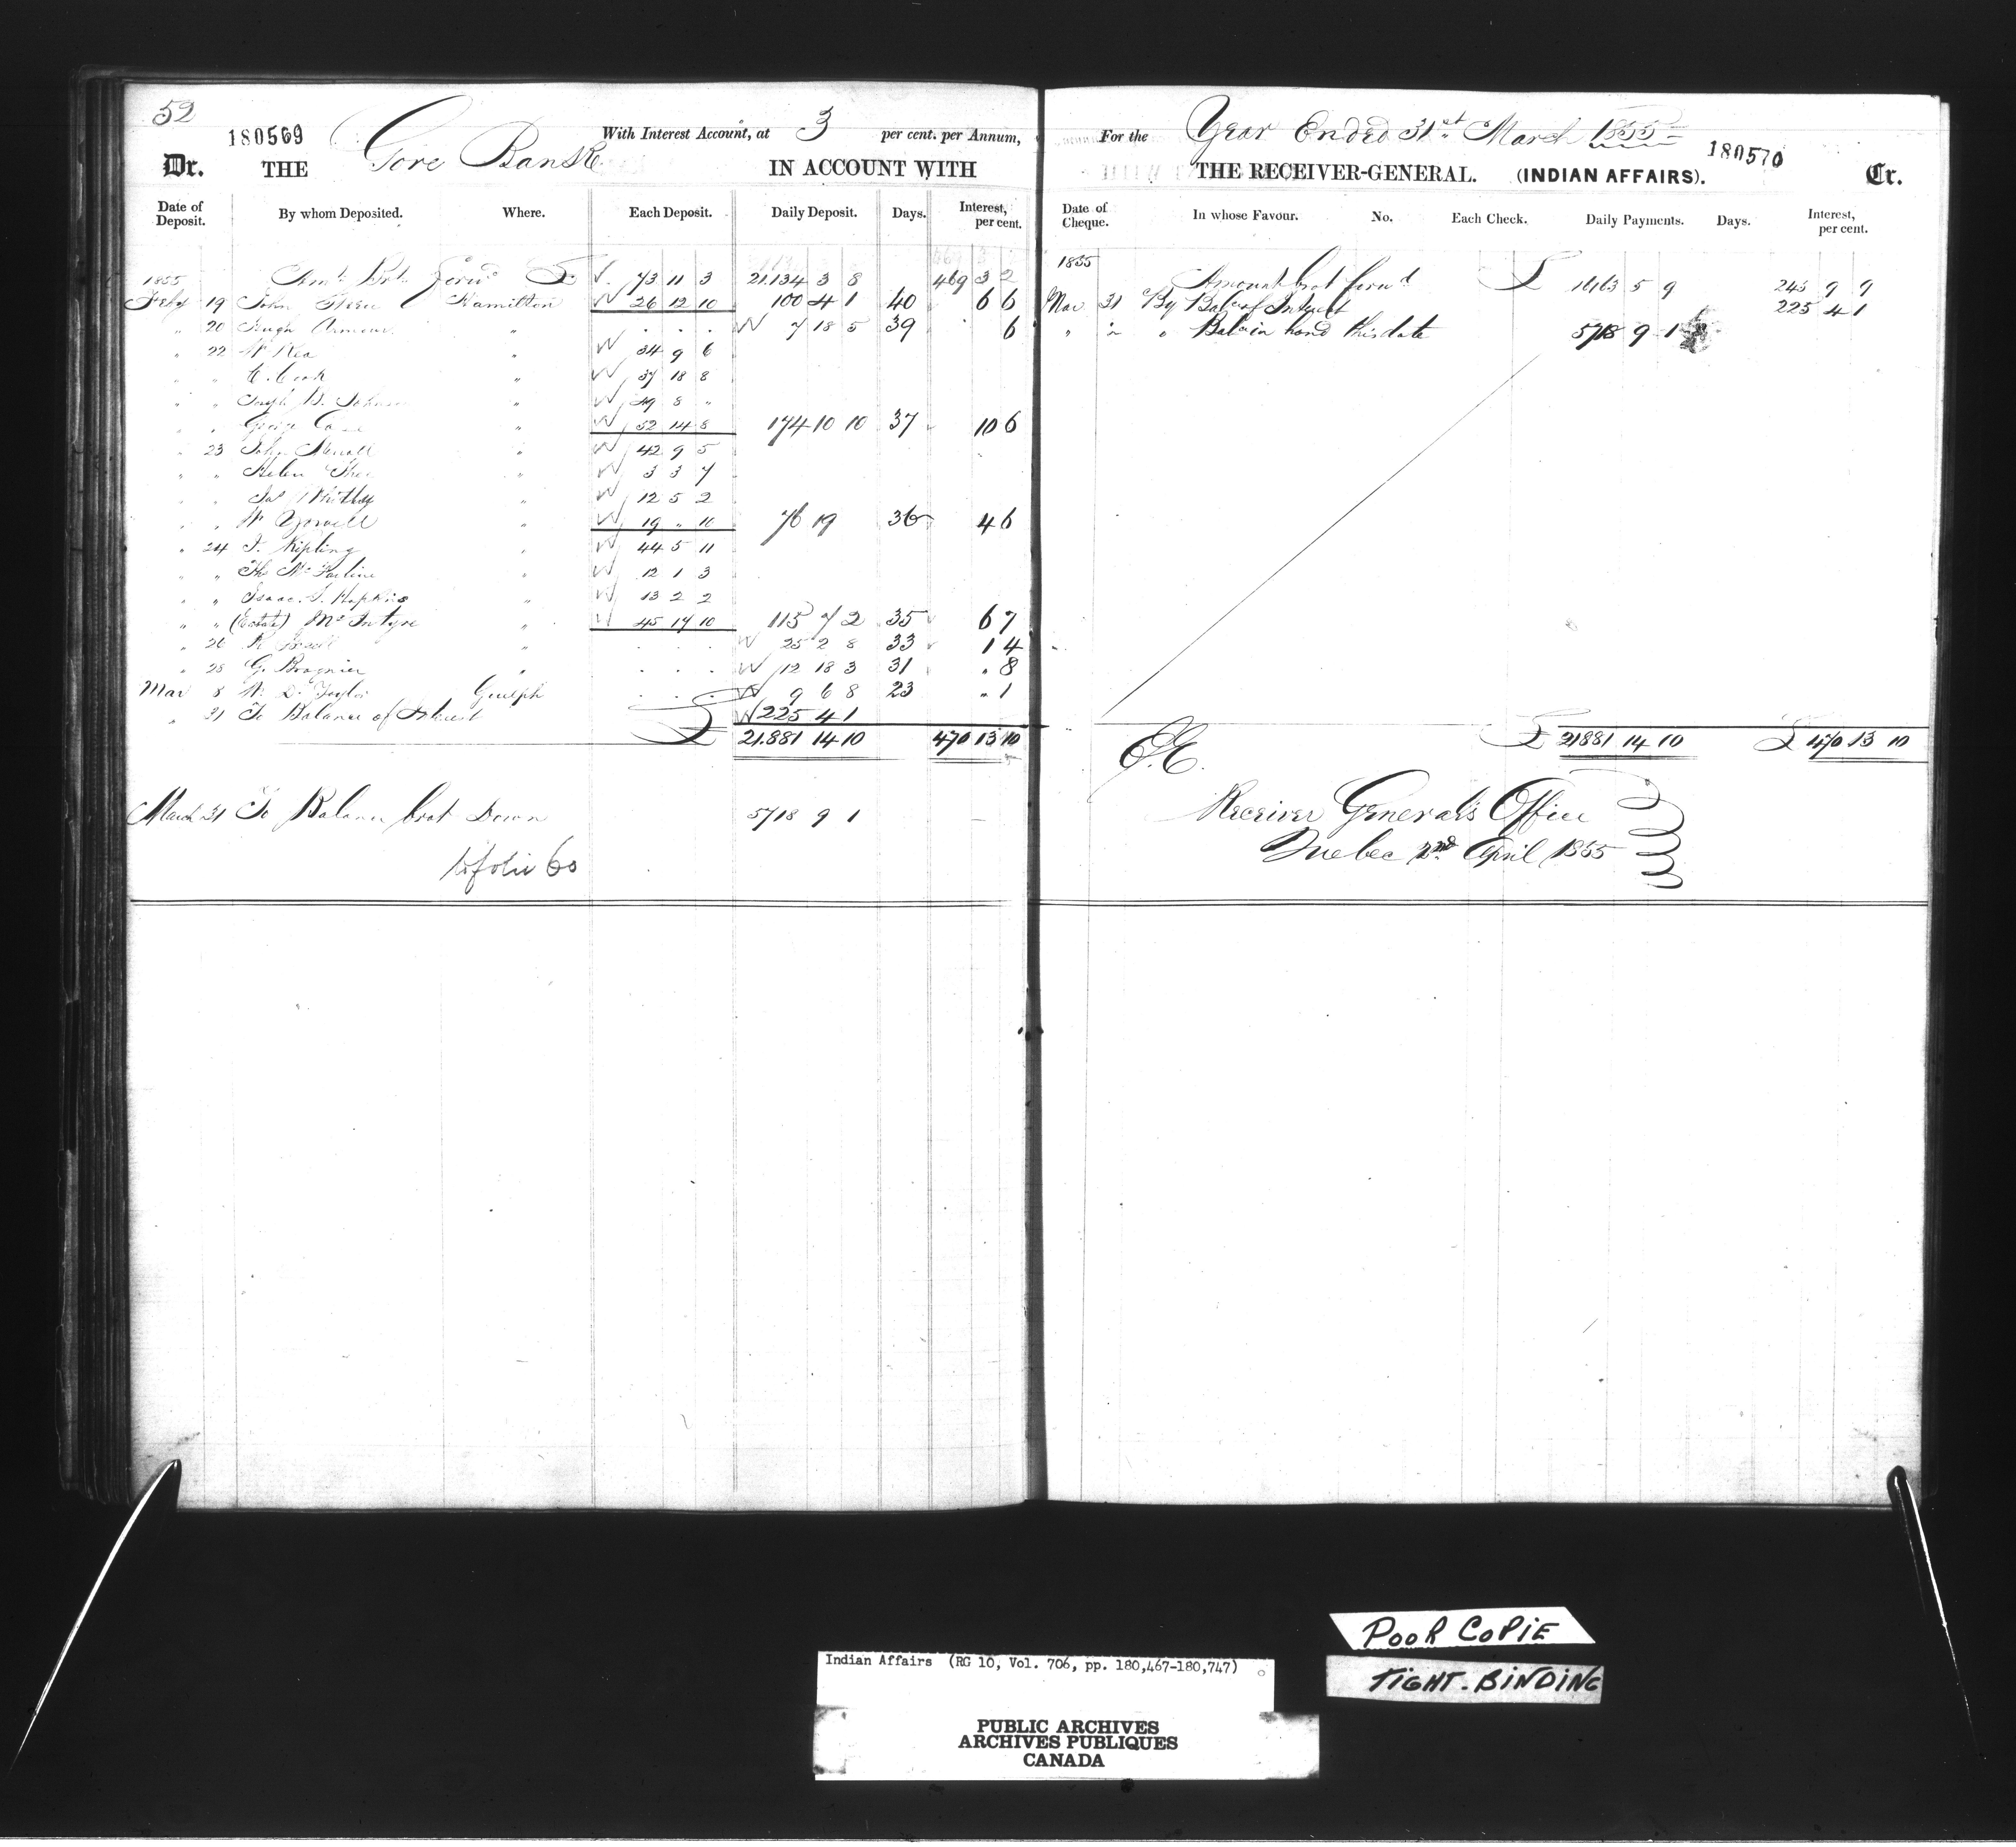 52
180569
Gore Bank
With Interest Account, at 3 per cent. per Annum,
Dr. THE IN ACCOUNT WITH
Date of Deposit. By whom Deposited. Where. Each Deposit. Daily Deposit. Days. Interest, per cent.
1855 Amt. Brt. Forwd £ 73 11 3 21.134 3 8 469 3 2
Feby 19 John Hamilton 26 12 10 100 4 1 40 6 6
" 20 Hugh " 7 18 5 39 6
" 22 Wm Rea " 34 9 6
" " C. Cook " 37 18 8
" " " 49 8 "
" " George " 52 14 8 174 10 10 37 10 6
" 23 John " 42 9 5
" " Helen " 3 3 7
" " Jas Whitley " 12 5 2
" " " 19 " 10 76 19 36 4 6
" 24 J. Kipling " 44 5 11
" " " 12 1 3
" " Isaac. J. Hopkins " 13 2 2
" " (Estate) McIntyre " 45 17 10 115 7 2 35 6 7
" 26 " 25 2 8 33 1 4
" 28 G. " 12 18 3 31 " 8
Mar 8 Taylor Guelph 9 6 8 23 " 1
" 31 To Balance of Interest 225 4 1
£ 21.881 14 10 470 13 10
March 31 To Balance brot Down 5718 9 1
to folio 60
For the Year Ended 31st March 1855
180570
THE RECEIVER-GENERAL. (INDIAN AFFAIRS). Cr.
Date of Cheque. In whose Favour. No. Each Check. Daily Payments. Days. Interest, per cent.
1855
Amount brot forwd £ 16163 5 9 245 9 9
Mar 31 By Balce of Interest 225 4 1
" " " Balce in hand this date 5718 9 1
E.E. £ 21881 14 10 £ 470 13 10
Receiver General's Office
Quebec 2nd April 1855
POOR COPIE
TIGHT. BINDING
Indian Affairs (RG 10, Vol. 706, pp. 180,467-180,747)
PUBLIC ARCHIVES
ARCHIVES PUBLIQUES
CANADA